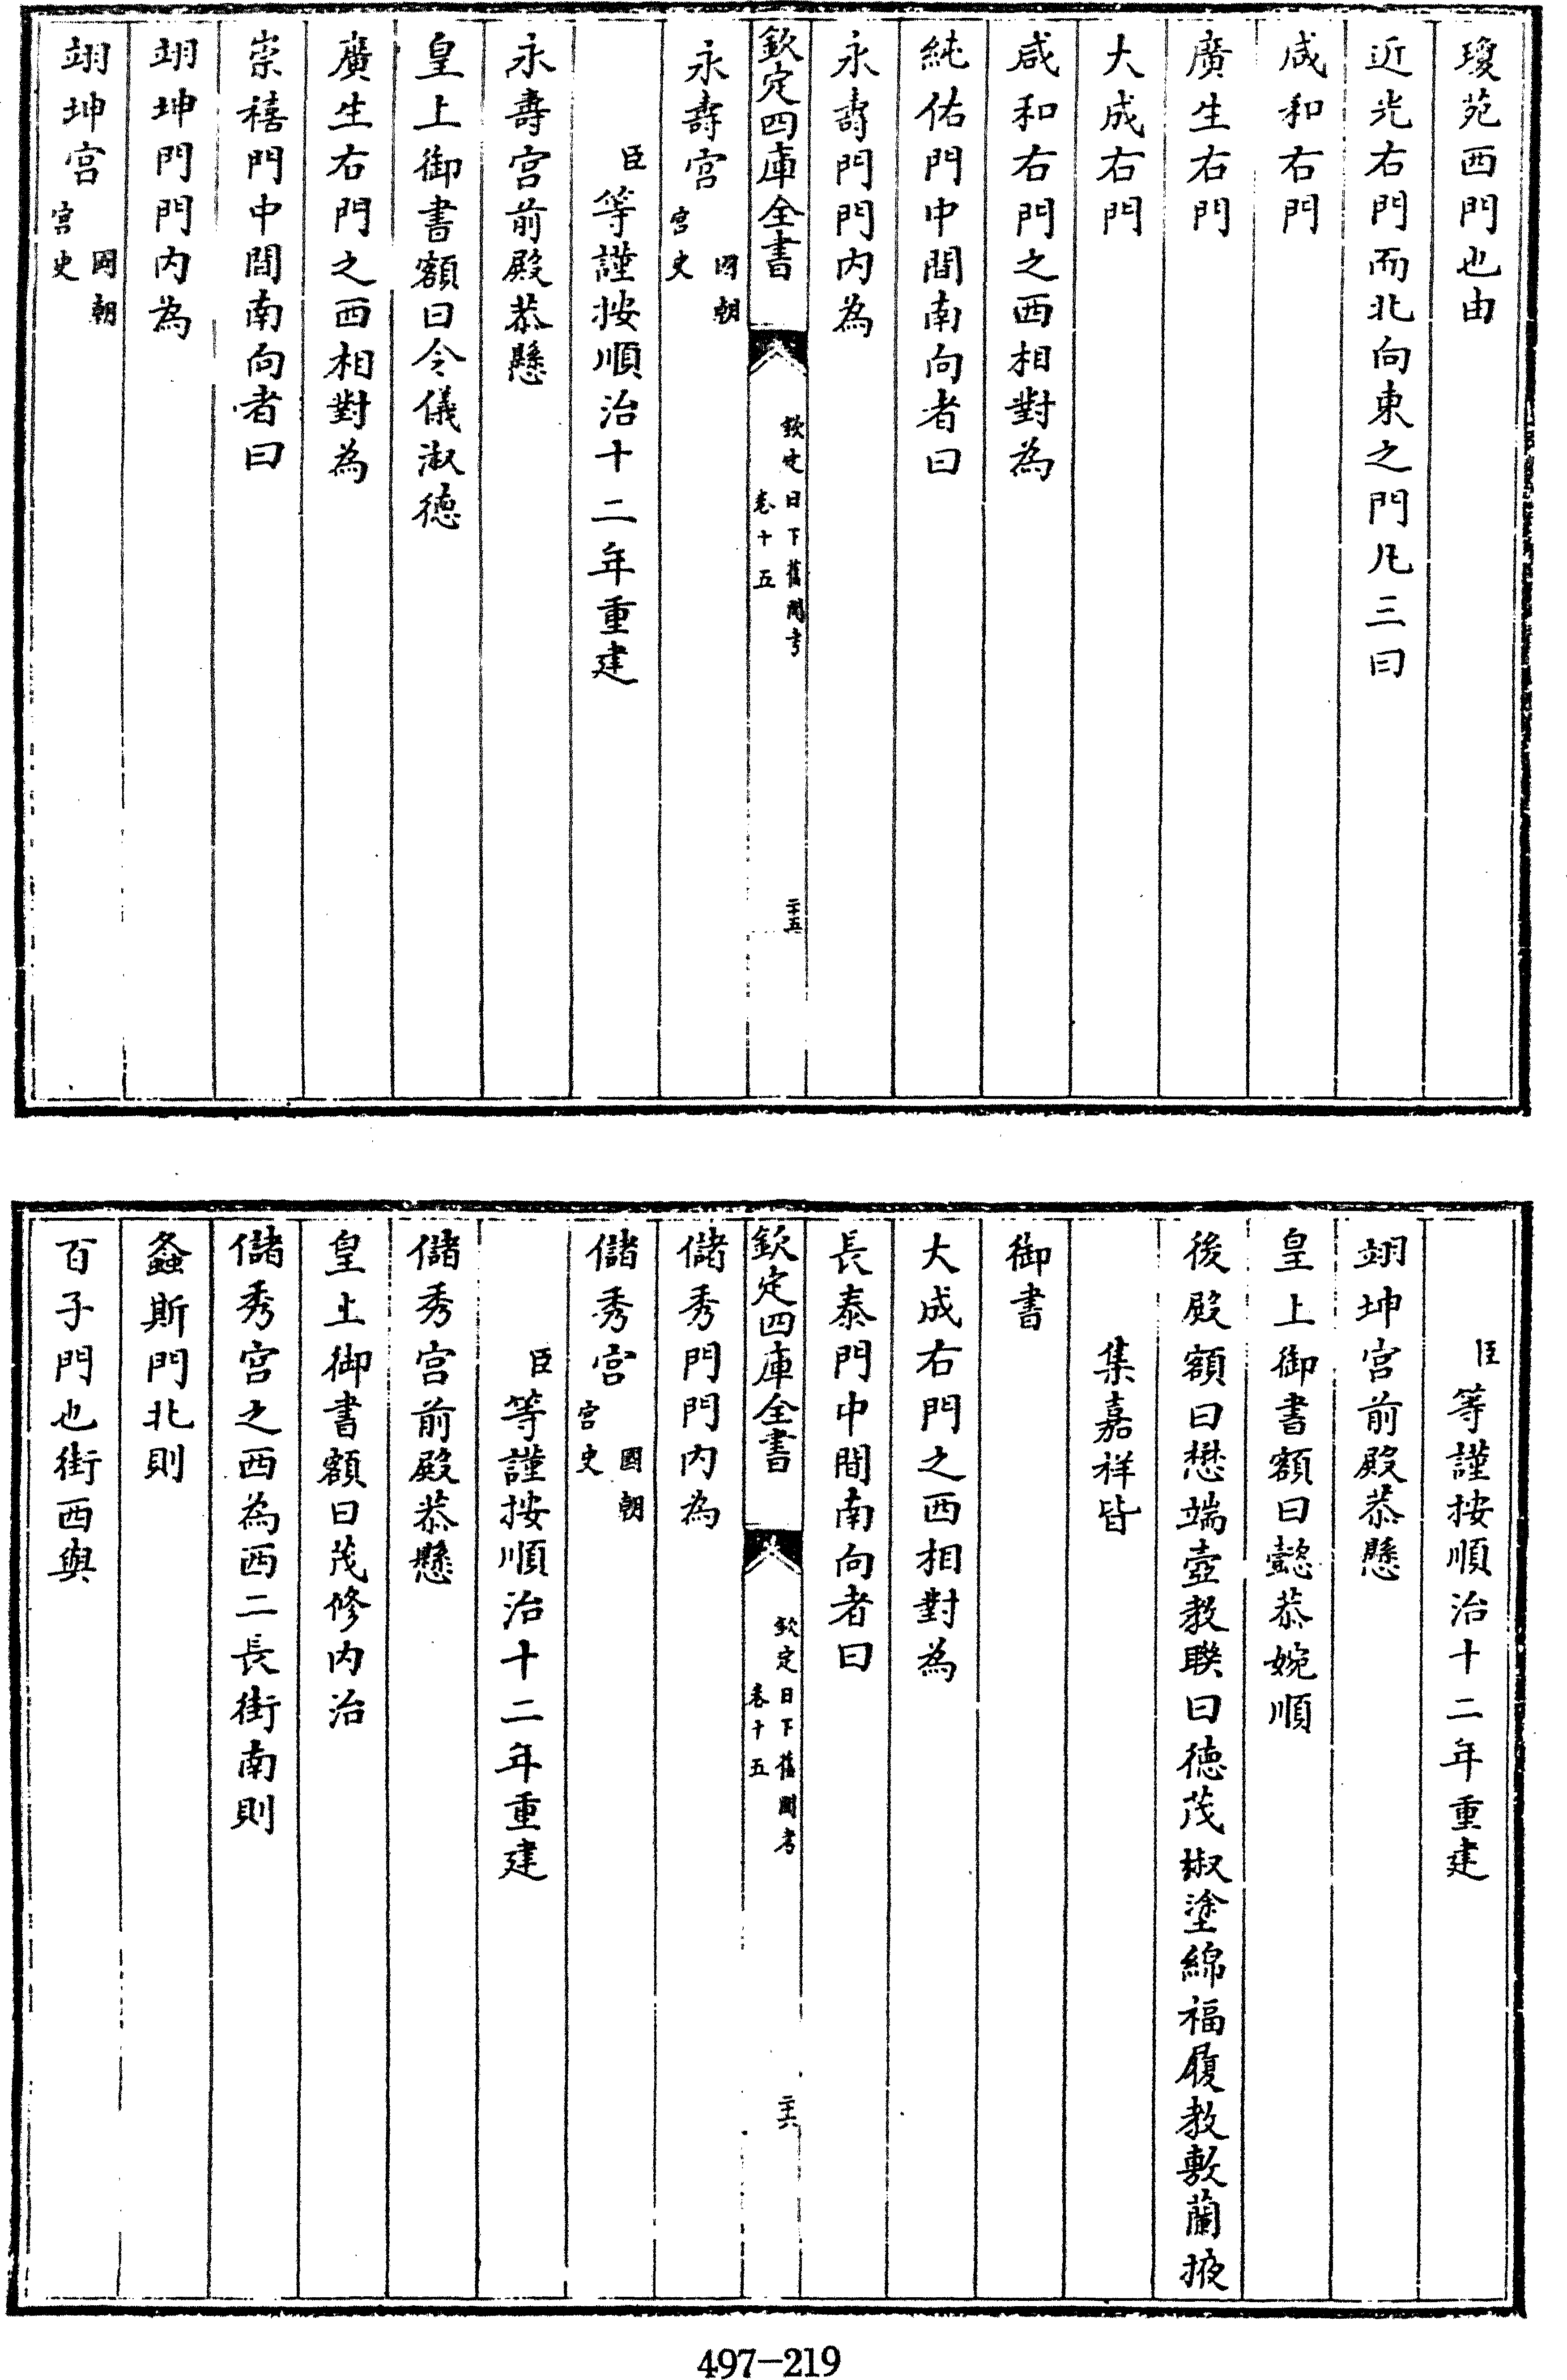 瓊苑西門也由
近光右門而北向東之門凡三曰
咸和右門
廣生右門
大成右門
咸和右門之西相對為
純佑門中間南向者曰
永壽門門内為
欽定四庫全書
欽定日下舊聞考
卷十五
二十五
永壽宫國朝宫史
臣等謹按順治十二年重建
永壽宫前殿恭懸
皇上御書額曰令儀淑德
廣生右門之西相對為
崇禧門中間南向者曰
翊坤門門内為
翊坤宫國朝宫史
臣等謹按順治十二年重建
翊坤宫前殿恭懸
皇上御書額曰懿恭婉順
後殿額曰懋端壼教聨曰德茂椒塗綿福履教敷蘭掖
集嘉祥皆
御書
大成右門之西相對為
長泰門中間南向者曰
欽定四庫全書
欽定日下舊聞考
卷十五
二十六
儲秀門門内為
儲秀宫國朝宫史
臣等謹按順治十二年重建
儲秀宫前殿恭懸
皇上御書額曰茂修内治
儲秀宫之西為西二長街南則
螽斯門北則
百子門也街西與
497-219